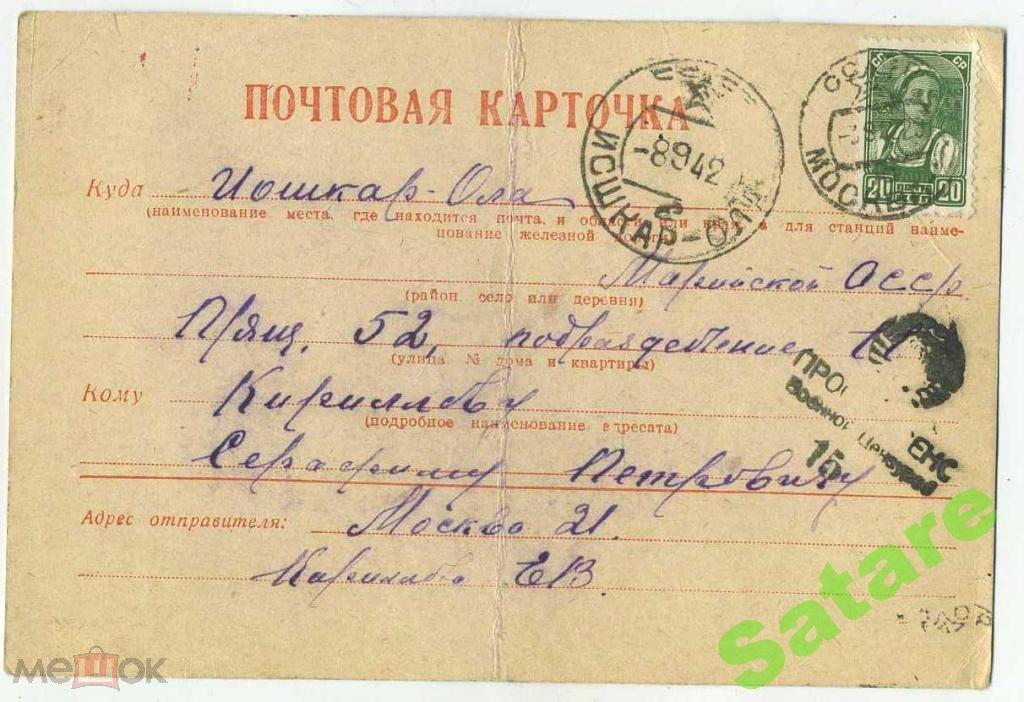 ПОЧТОВАЯ КАРТОЧКА
Куда Йошкар-Ола
(наименование места, где находится почта, и области или края, а для станций наиме-
нование железной дороги)
Марийской АССР
(район, село или деревня)
П/ящ. 52, подразделение 11
(улица, № дома и квартиры)
Кому Кириллову
(подробное наименование адресата)
Серафиму Петровичу
Адрес отправителя: Москва 21.
Кириллова ЕВ
-8 9 42
ЙОШКАР-ОЛА
СССР
МОСКВА
20 ПОЧТА 20
СССР
ПРОС ЕНС
Военной Цензурой
15
Satare
мешок